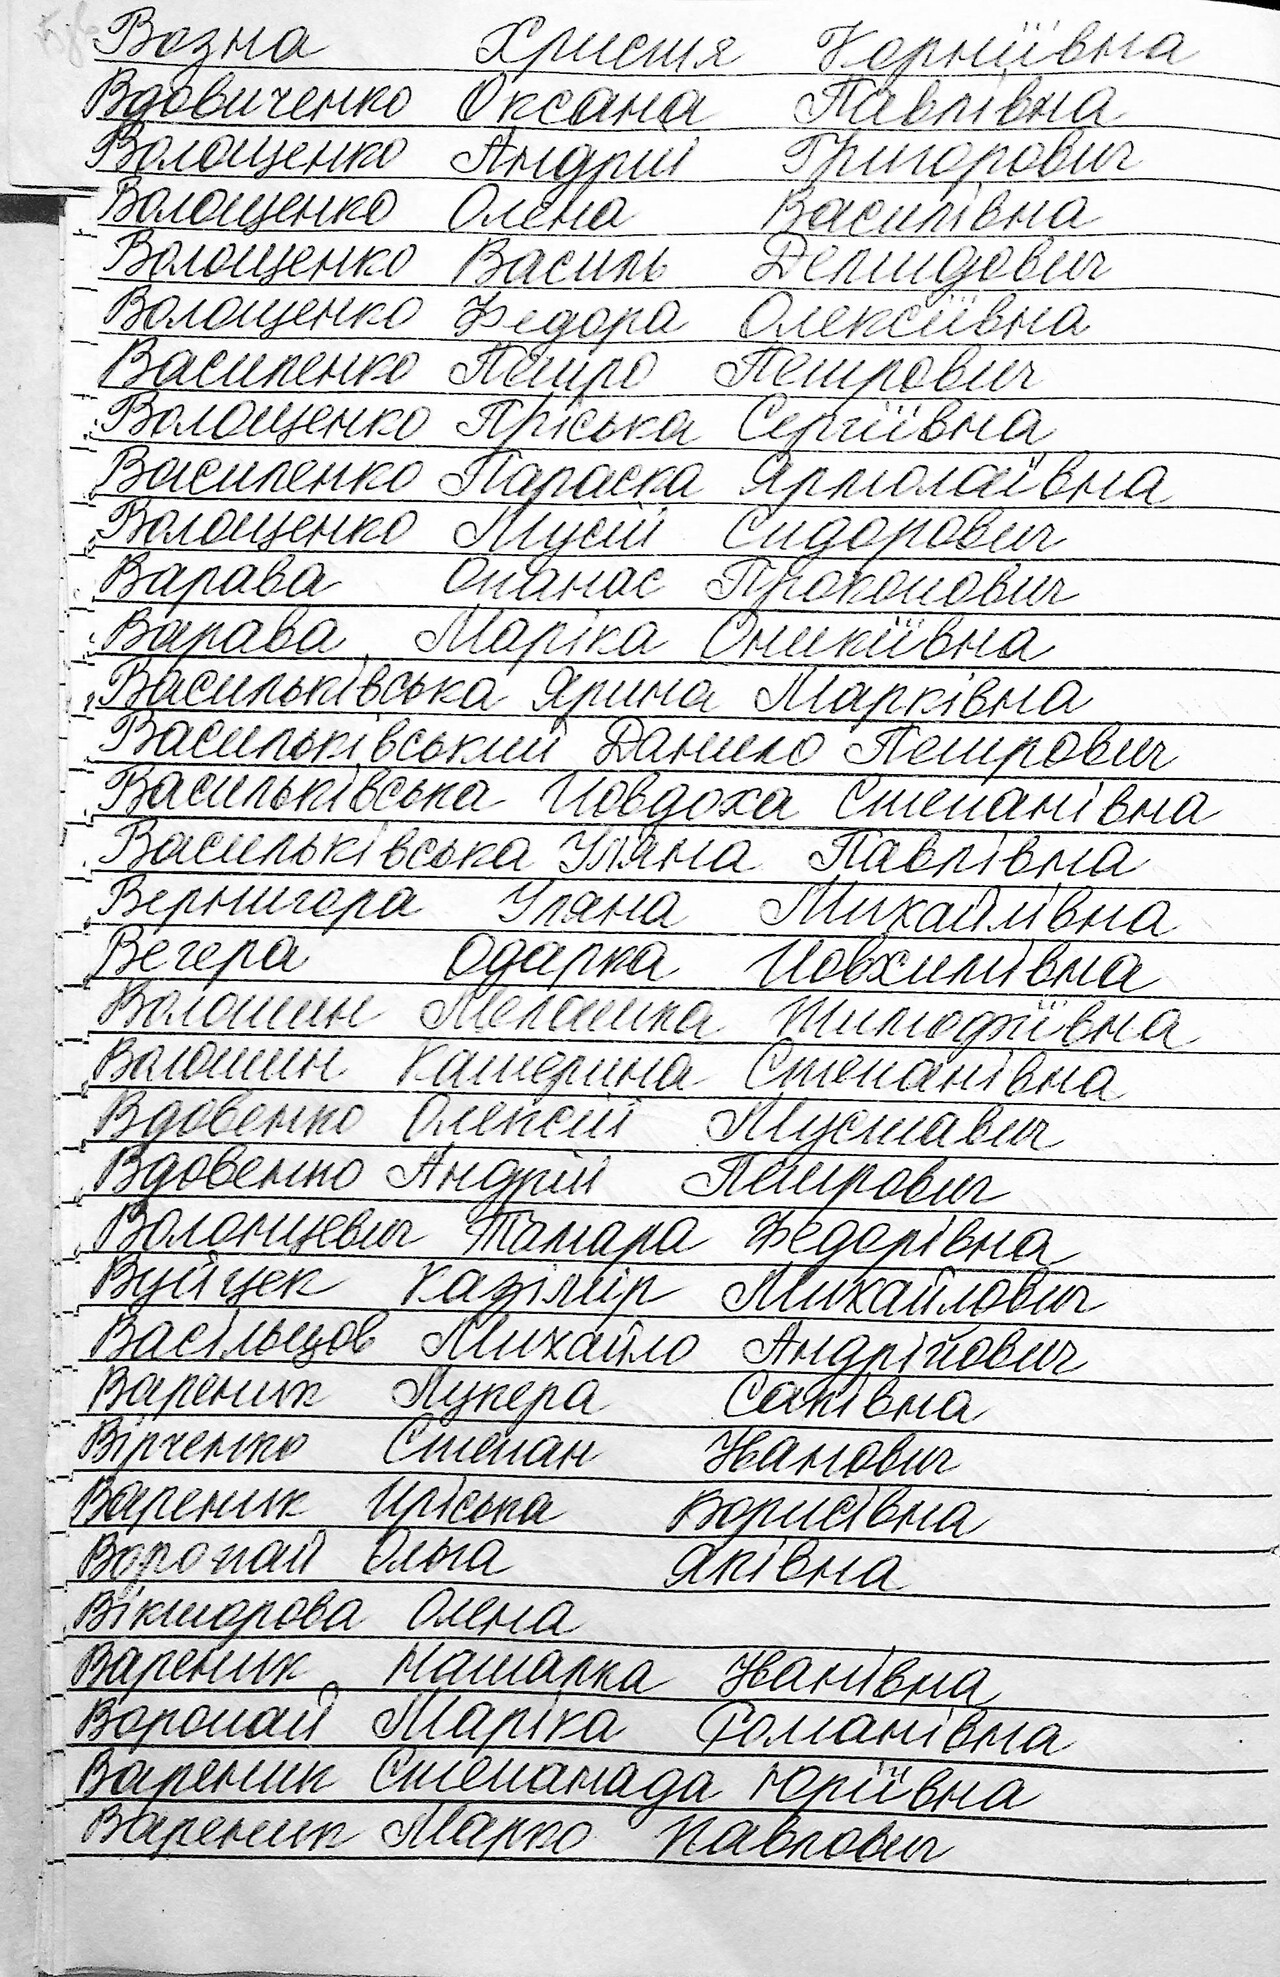 Возна Христя Корніївна
Вдовиченко Оксана Павлівна
Волощенко Андрій Григорович
Волощенко Олена Василівна
Волощенко Василь Демидович
Волощенко Федора Олексіївна
Василенко Петро Петрович
Волощенко Пріська Сергіївна
Василенко Параска Ярмолаївна
Волощенко Мусій Сидорович
Варава Опанас Прокопович
Варава Маріка Оникіївна
Васильківська Ярина Марківна
Васильківський Данило Петрович
Васильківська Йовдоха Степанівна
Васильківська Уляна Павлівна
Вернигора Уляна Михайлівна
Вегера Одарка Йовхимівна
Волошин Меланка Тимофіївна
Волошин Катерина Степанівна
Вдовенко Олексій Мусійович
Вдовенко Андрій Петрович
Тамара Федорівна
Вуйцек Казімір Михайлович
Васільцов Михайло Андрійович
Вареник Лукера Саківна
Вірченко Степан Іванович
Вареник Пріська Борисівна
Воропай Ольга Яківна
Вікторова Олена
Вареник Наталка Іванівна
Воропай Маріка Романівна
Вареник Степанада Юріївна
Вареник Марко Павлович